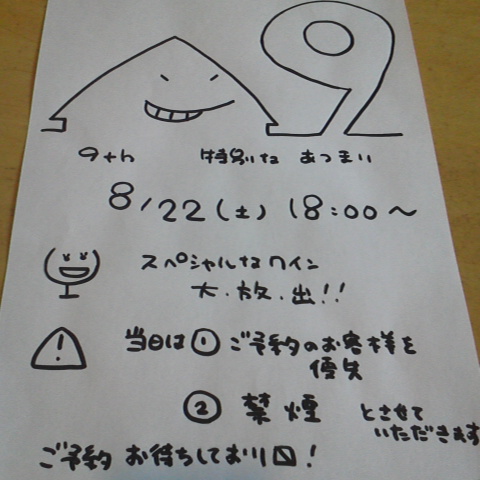 9
9th 特別な あつまり
8/22(土) 18:00〜
スペシャルなワイン
大・放・出!!
当日は① ご予約のお客様を
優先
② 禁煙 とさせて
いただきます
ご予約 お待ちしており〼!